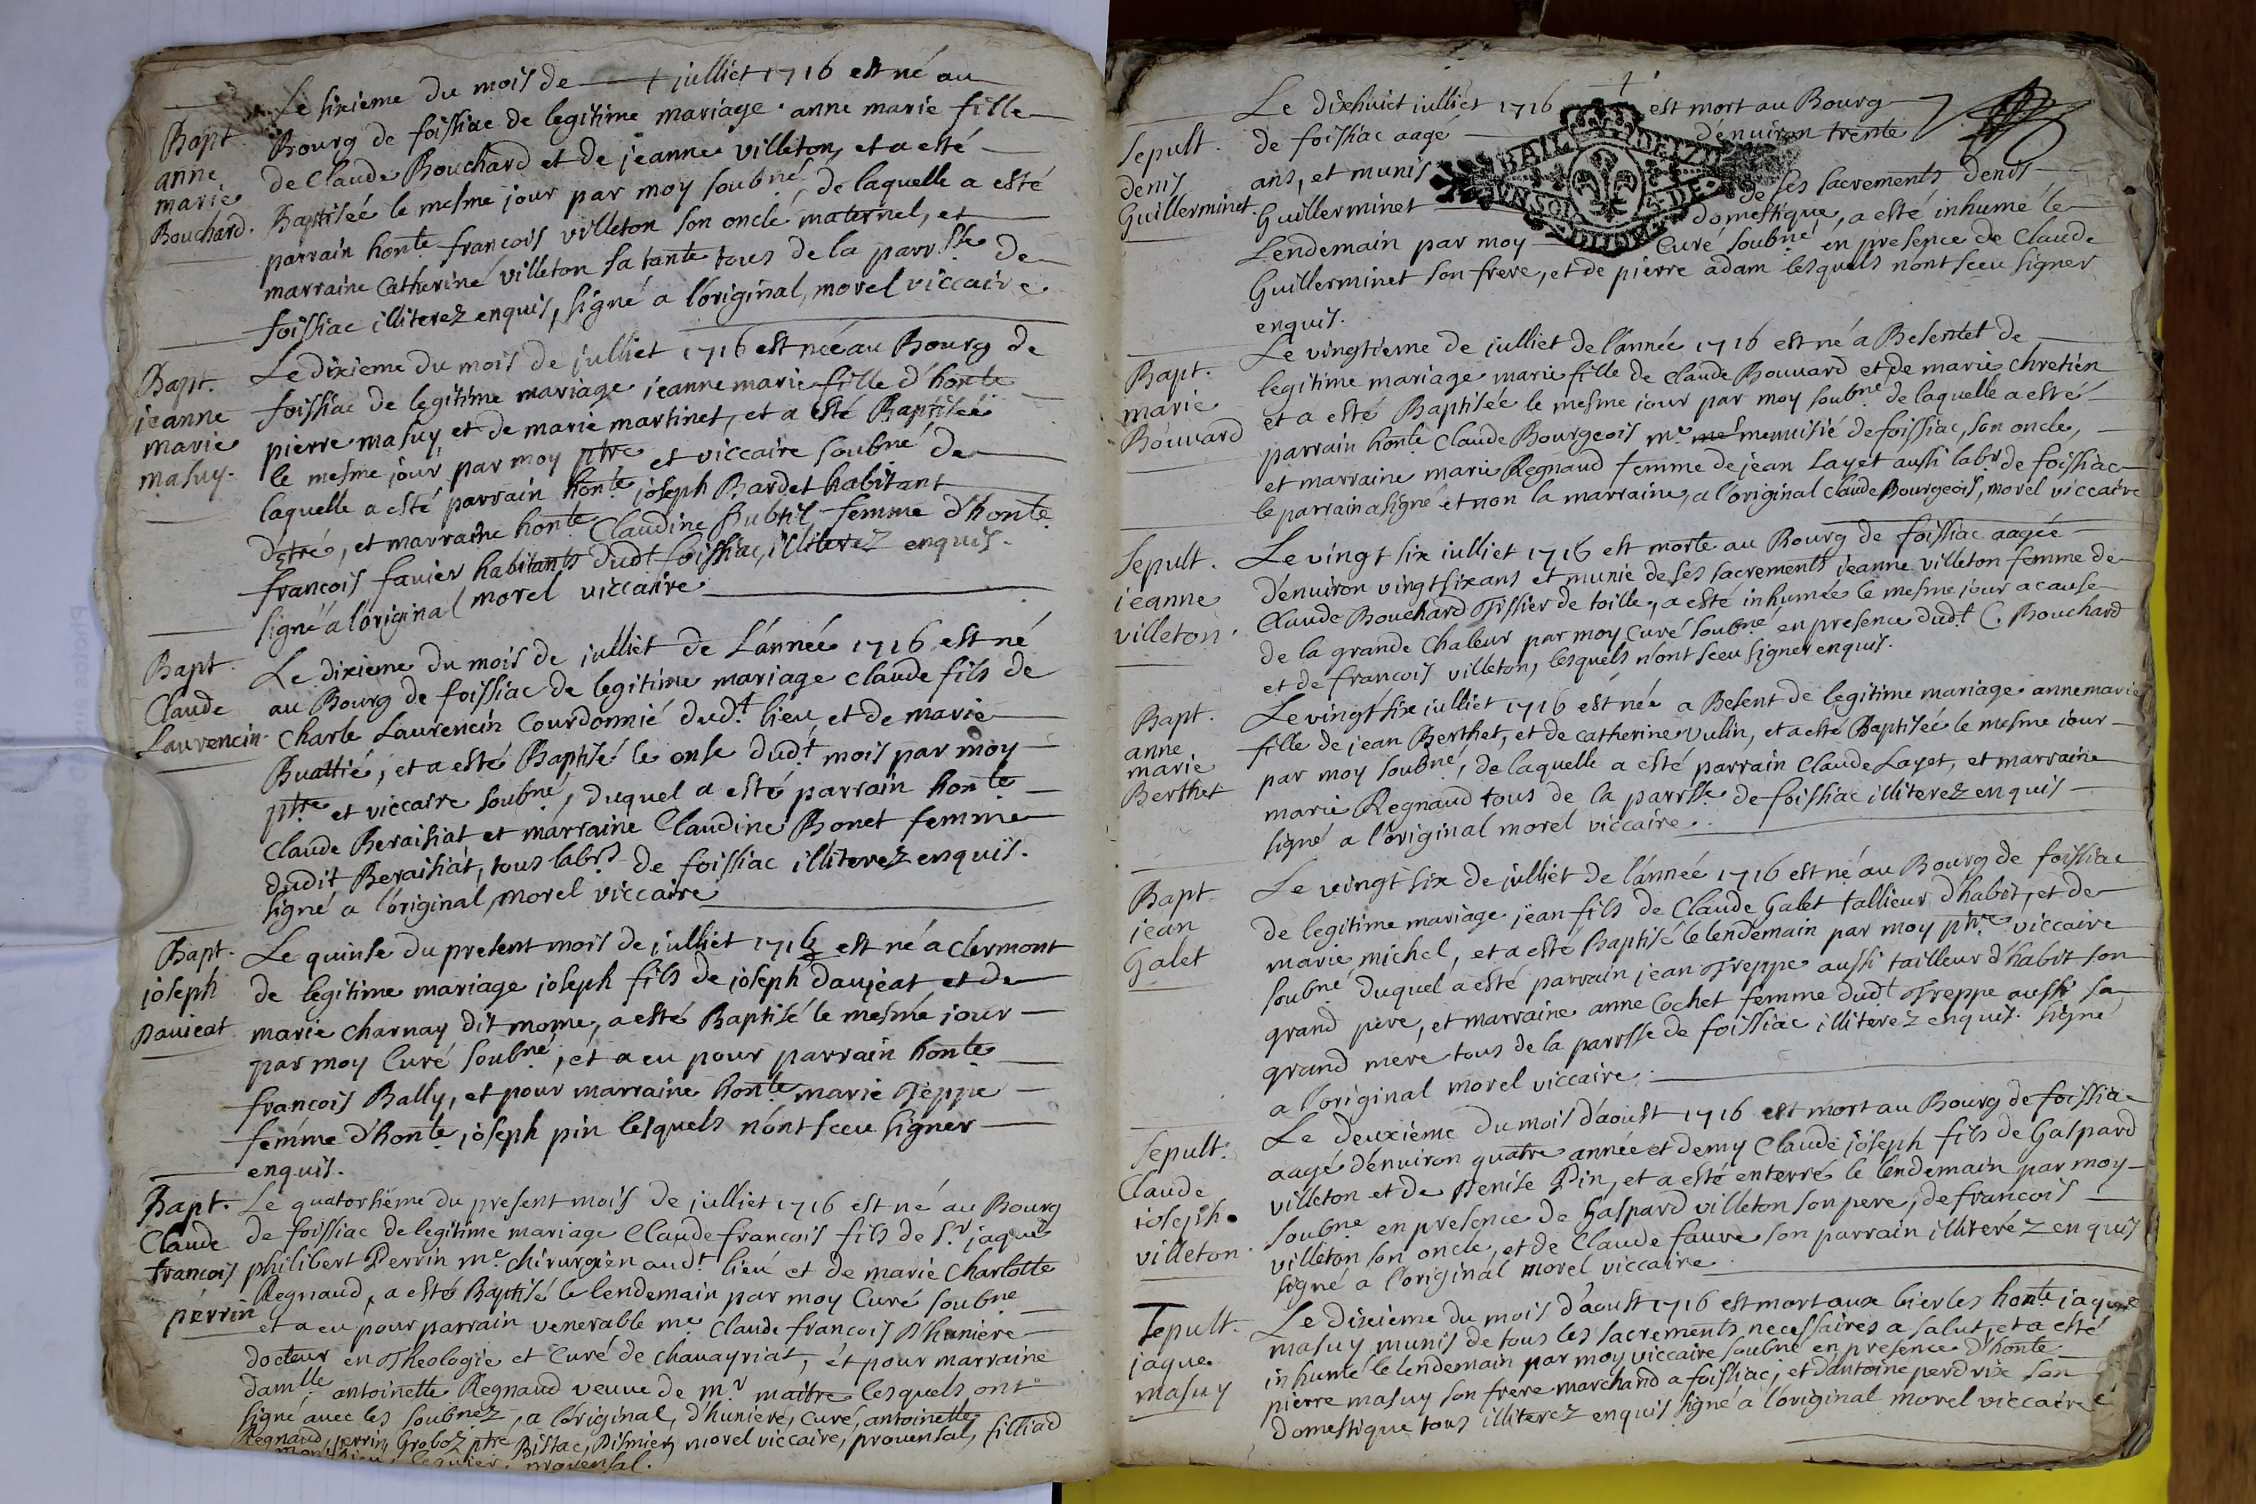 Le sixieme du mois de julliet 1716 est né au
Bapt. Bourg de foissiac de legitime mariage anne marie fille
anne de Claude Bouchard et de jeanne villeton, et a esté
marie Baptisée le mesme jour par moy soubné, de laquelle a esté
Bouchard. parrain honte francois villeton son oncle maternel, et
marraine Catherine villeton sa tante tous de la parrsse de
foissiac illiterez enquis, signé a l'original, morel viccaire
Le dixieme du mois de julliet 1716 est née au Bourg de
Bapt. foissiac de legitime mariage jeanne marie fille d'honte
jeanne pierre masuy et de marie martinet, et a esté Baptisée
marie le mesme jour par moy ptre et viccaire soubné de
masuy. laquelle a esté parrain honte joseph Bardet habitant
, et marraine honte Claudine Subtil femme d'honte
francois favier habitants dudt foissiac, illiterez enquis.
signé a l'original morel viccaire
Bapt. Le dixieme du mois de julliet de L'année 1716 est né
Claude au Bourg de foissiac de legitime mariage claude fils de
Laurencin. Charle Laurencin Courdonnié dudt. lieu, et de marie
Buattié, et a esté Baptisé le onse dudt mois par moy
ptre et viccaire soubné, duquel a esté parrain honte
Claude Beraisiat et marraine Claudine Bonet femme
dudit Beraisiat, tous labrs de foissiac illiterez enquis.
signé a l'original, morel viccaire
Bapt. Le quinse du present mois de julliet 1716 est né a Clermont
joseph de legitime mariage joseph fils de joseph daujeat et de
Daujeat marie charnay dit mome, a esté Baptisé le mesme jour
par moy Curé soubné, et a eu pour parrain honte
francois Bally, et pour marraine honte marie Teppe
femme d'honte joseph pin lesquels n'ont sceu signer
enquis.
Bapt. Le quatorsieme du present mois de julliet 1716 est né au Bourg
Claude de foissiac de legitime mariage Claude francois fils de Sr jaque
francois philibert Perrin me chirurgien audt. lieu et de marie Charlotte
perrin Regnaud, a esté Baptisé le lendemain par moy Curé soubné
et a eu pour parrain venerable me Claude francois D'huniere
docteur en Theologie et Curé de chavayriat, et pour marraine
damlle antoinette Regnaud veuve de mr maitre lesquels ont
signé avec les soubnez, a l'original, d'huniere, Curé, antoinette
Regnaud, perrin, Groboz ptre Bistac, Dismier, morel viccaire, provensal, filliad
provensal.
Le dixhuict julliet 1716 est mort au Bourg
Sepult. de foissiac aagé d'environ trente
denis ans, et munis de ses sacrements denis
Guillerminet. Guillerminet domestique, a esté inhumé le
Lendemain par moy Curé soubné en presence de Claude
Guillerminet son frere, et de pierre adam lesquels n'ont sceu signer
enquis.
Le vingtieme de julliet de l'année 1716 est né a Besentet de
Bapt. legitime mariage marie fille de Claude Bouvard et de marie chretien
marie et a esté Baptisée le mesme jour par moy soubné de laquelle a esté
Bouvard parrain honte Claude Bourgeois me menuisié de foissiac, son oncle,
et marraine marie Regnaud femme de jean Layet aussi labr de foissiac
le parrain a signé et non la marraine, a l'original Claude Bourgeois, morel viccaire
Sepult. Le vingt six julliet 1716 est morte au Bourg de foissiac aagée
jeanne d'environ vingt six ans et munie de ses sacrements jeanne villeton femme de
villeton. Claude Bouchard Tissier de toille, a esté inhumée le mesme jour a cause
de la grande chaleur par moy Curé soubné en presence dudt C. Bouchard
et de francois villeton, lesquels n'ont sceu signer enquis.
Bapt. Le vingt six julliet 1716 est née a Besent de legitime mariage anne marie
anne fille de jean Berthet, et de catherine vulin, et a esté Baptisée le mesme jour
marie par moy soubné, de laquelle a esté parrain Claude Layet, et marraine
Berthet marie Regnaud tous de la parrsse de foissiac illiterez enquis
signé a l'original morel viccaire.
Bapt. Le vingt six de julliet de l'année 1716 est né au Bourg de foissiac
jean de legitime mariage jean fils de Claude Galet tallieur d'habit, et de
Galet marie michel, et a esté Baptisé le lendemain par moy ptre viccaire
soubné duquel a esté parrain jean Treppe aussi tailleur d'habit son
grand pere, et marraine anne Cochet femme dudt Treppe aussi sa
grand mere tous de la parrsse de foissiac illiterez enquis signé
a l'original morel viccaire.
Le deuxieme du mois d'aoust 1716 est mort au Bourg de foissiac
Sepult. aagé d'environ quatre année et demy Claude joseph fils de Gaspard
Claude villeton et de Denise Pin, et a esté enterré le lendemain par moy
joseph soubné en presence de Gaspard villeton son pere, de francois
villeton. villeton son oncle, et de Claude fauvre son parrain illiteréz enquis
signé a l'original morel viccaire
Sepult. Le dixieme du mois d'aoust 1716 est mort aux bierles honte jaque
jaque masuy munis de tous les sacrements necessaires a salut, et a esté
masuy inhumé le lendemain par moy viccaire soubné en presence d'honte
pierre masuy son frere marchand a foissiac, et d'antoine perdrix son
domestique tous illiterez enquis signé a l'original morel viccaire